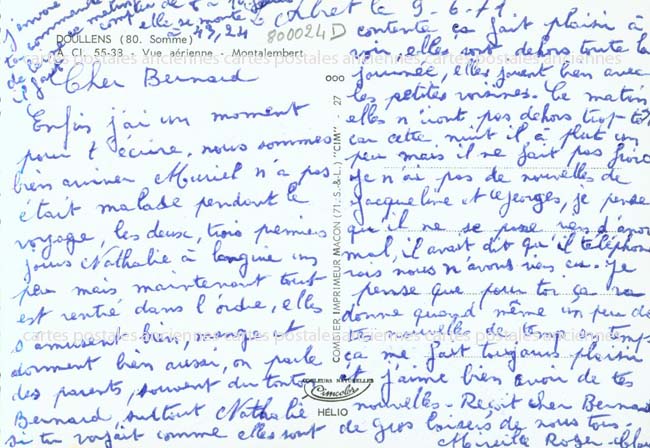 J'envoie
DOULLENS (80. Somme)
A CI. 55-33 - Vue aérienne - Montalembert
elle se monte
à 47,24
800024 D
Albret le 9-6-71
Cher Bernard
Enfin j'ai un moment
pour t'écrire. nous sommes
bien arriver Muriel n'a pas
était malade pendant le
voyage, les deux, trois premiers
jours Nathalie à languie un
peu mais maintenant tout
est rentré dans l'ordre, elles
s'amusent bien, mangent et
dorment bien aussi, on parle
des parents, souvent du tonton
Bernard, surtout Nathalie
si tu voyait comme elles sont
contente ça fait plaisir à
voir, elles sont dehors toute la
journée, elles jouent bien avec
les petites voisines. Ce matin
elles n'iront pas dehors trop tôt
car cette nuit il à plut un
peu mais il ne fait pas froid
Je n'ai pas de nouvelles de
Jacqueline et Georges, je pense
qu'il ne se passe rien d'anor
mal, il avait dit qu'il téléphone
rais nous n'avons rien eu. je
pense que pour toi ça va
donne quand même un peu de
tes nouvelles de temps en temps
ça me fait toujours plaisir
et j'aime bien avoir de tes
nouvelles. Reçoit cher Bernard
de gros baisers de nous tous
Mireille Roger
000
27
COMBIER IMPRIMEUR MACON (71. S.-&-L.) "CIM"
COULEURS NATURELLES
Cimcolor
HÉLIO
cartes postales anciennes cartes postales anciennes cartes postales anciennes
cartes postales anciennes cartes postales anciennes cartes postales anciennes